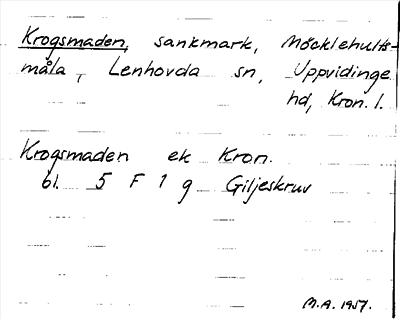 Krogsmaden, sankmark, Möcklehults-
måla, Lenhovda sn, Uppvidinge
hd, Kron. l.
Krogsmaden ek Kron.
bl. 5 F 1 g Giljeskruv
M.A. 1957.